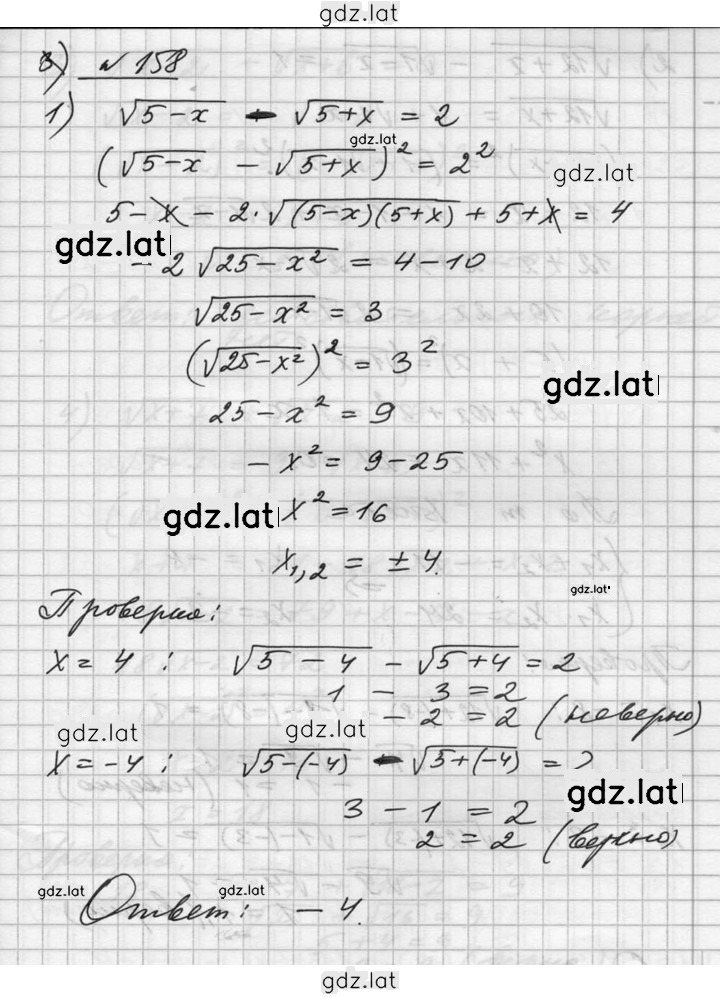 gdz.lat
3) № 158
1) √5-x - √5+x = 2
gdz.lat
(√5-x - √5+x)² = 2²
gdz.lat
5-x - 2·√(5-x)(5+x) + 5+x = 4
gdz.lat
- 2 √25-x² = 4-10
√25-x² = 3
(√25-x²)² = 3²
gdz.lat
25-x² = 9
-x² = 9-25
gdz.lat x² = 16
x₁,₂ = ±4.
gdz.lat
Проверка:
x = 4 : √5-4 - √5+4 = 2
1 - 3 = 2
-2 = 2 (неверно)
gdz.lat gdz.lat
x = -4 : √5-(-4) - √5+(-4) = 2
gdz.lat
3 - 1 = 2
2 = 2 (верно)
gdz.lat gdz.lat
Ответ: -4.
gdz.lat